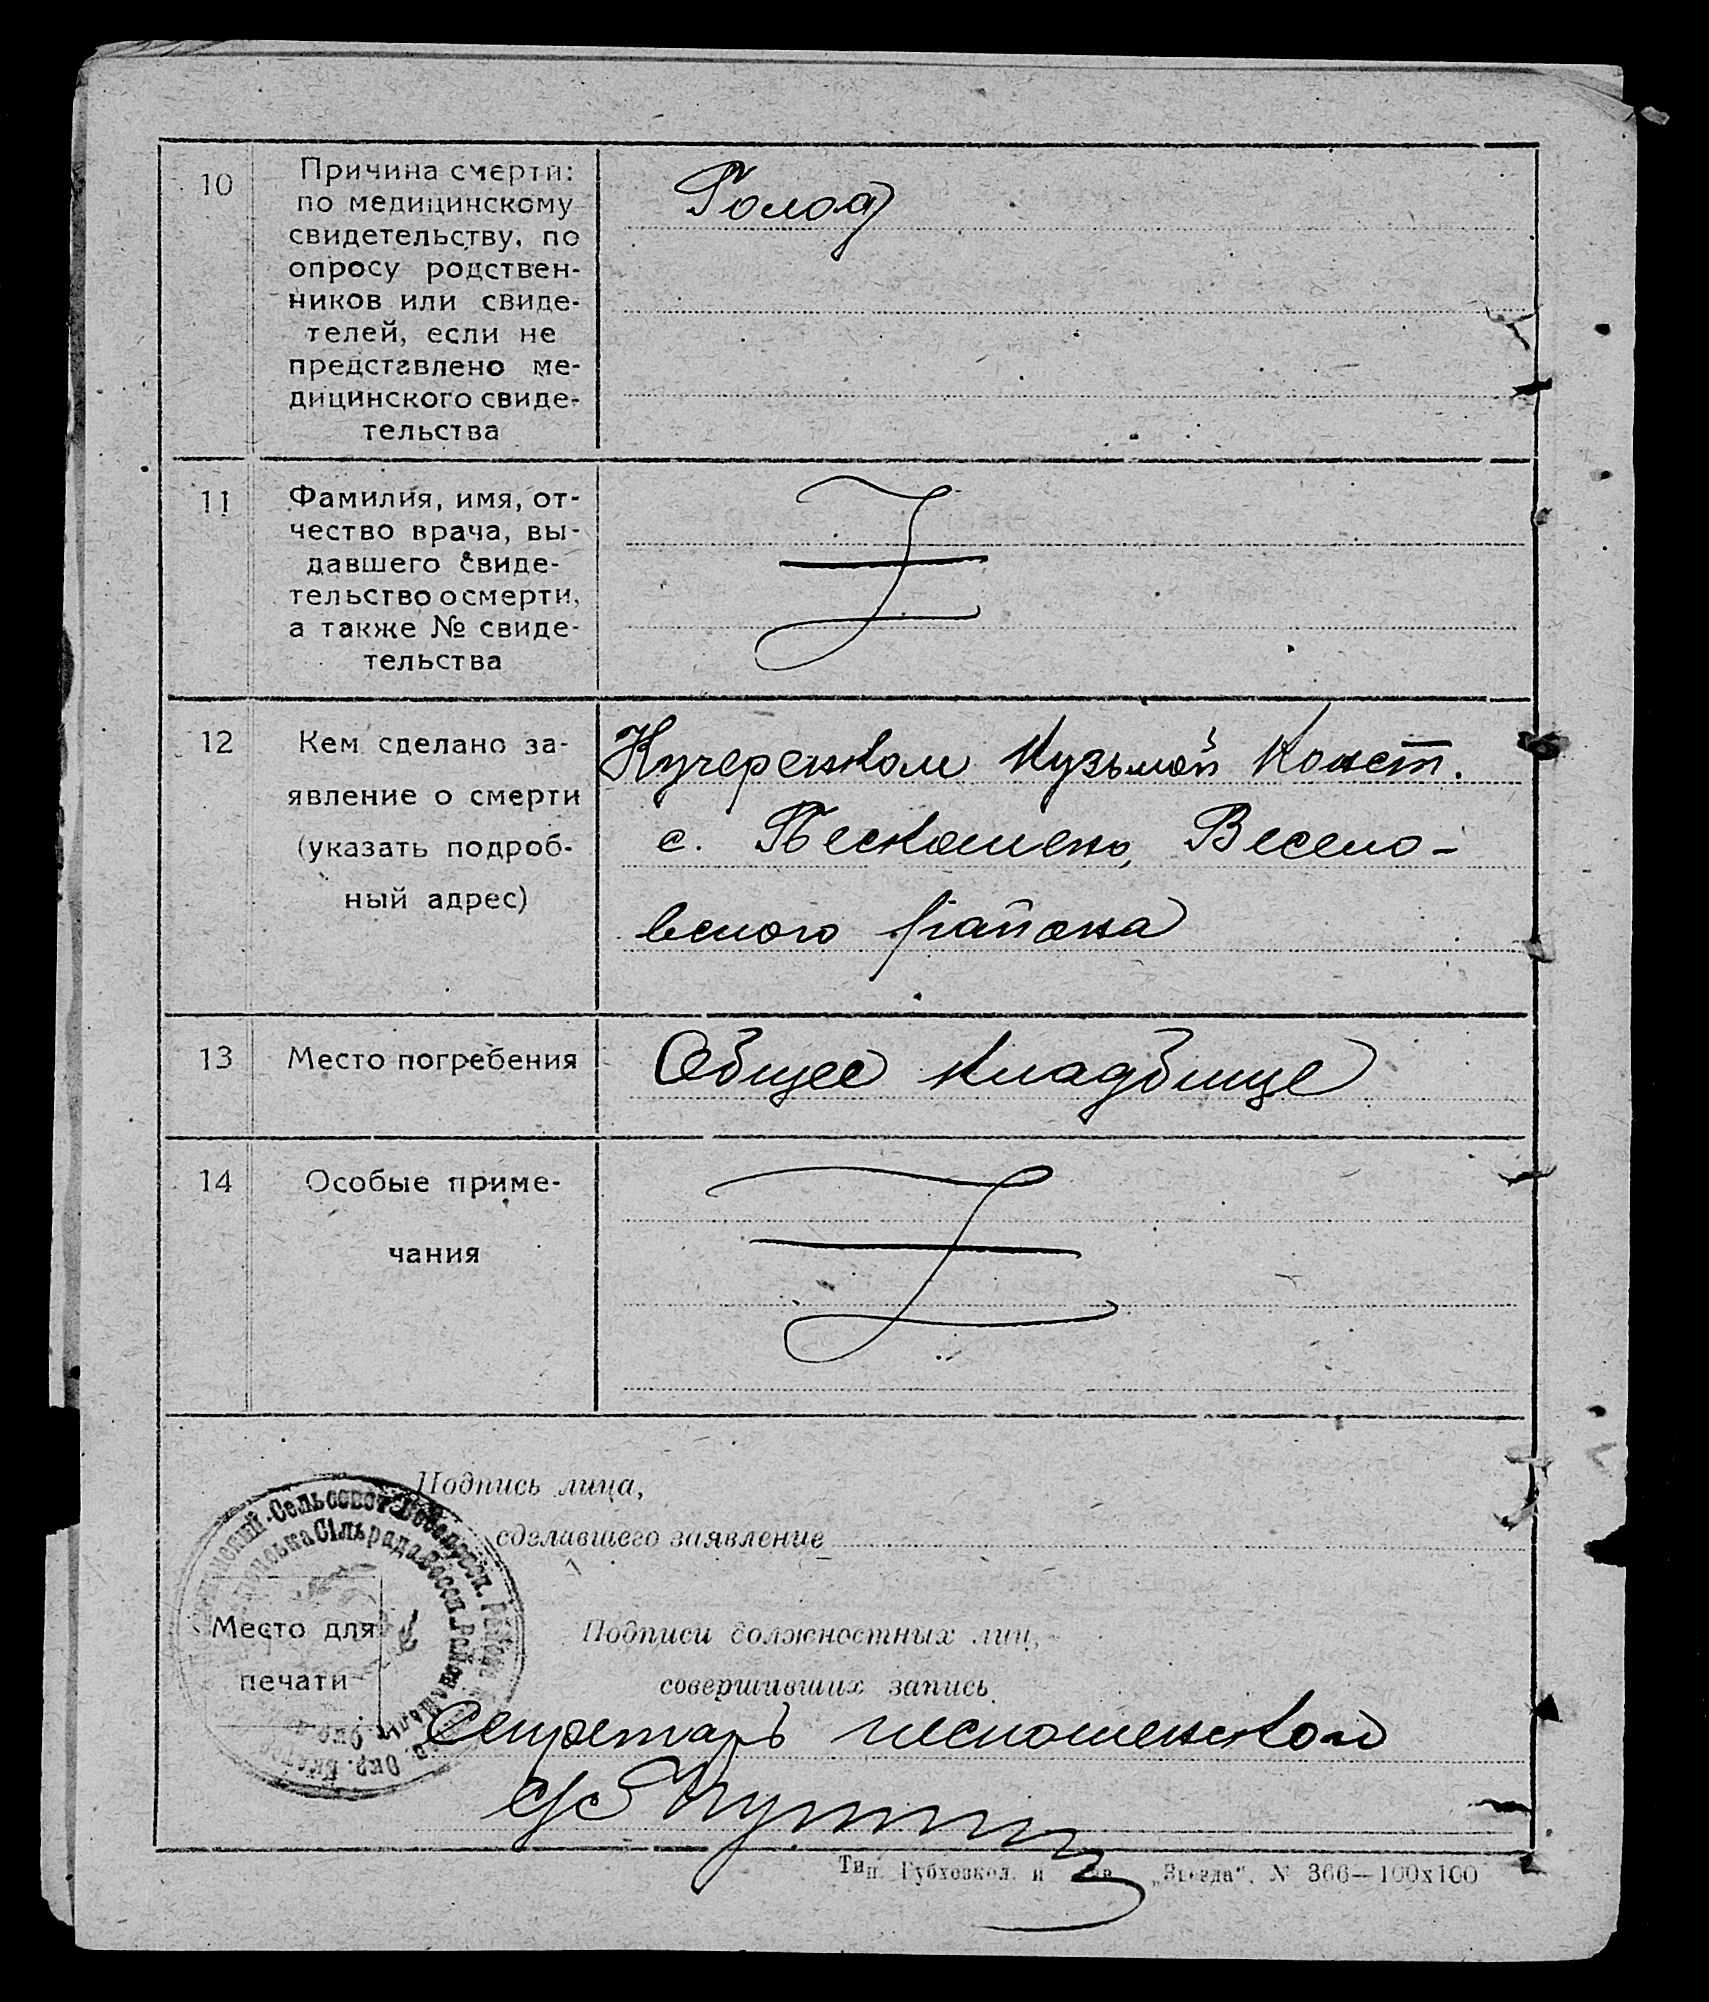 10
Причина смерти:
по медицинскому
свидетельству, по
опросу родствен-
ников или свиде-
телей, если не
представлено ме-
дицинского свиде-
тельства
Голод
11
Фамилия, имя, от-
чество врача, вы-
давшего свиде-
тельство о смерти,
а также № свиде-
тельства
12
Кем сделано за-
явление о смерти
(указать подроб-
ный адрес)
Кучеренком Кузьмой Конст.
с. Пескошено, Весело-
вского района
13
Место погребения
Общее кладбище
14
Особые приме-
чания
Подпись лица,
сделавшего заявление
Место для
печати
Сельсовет
Сільрада
Подписи должностных лиц,
совершивших запись
Секретарь песношенского
с/с
Тип. Губхозкол. и „Звезда“. № 366—100х100